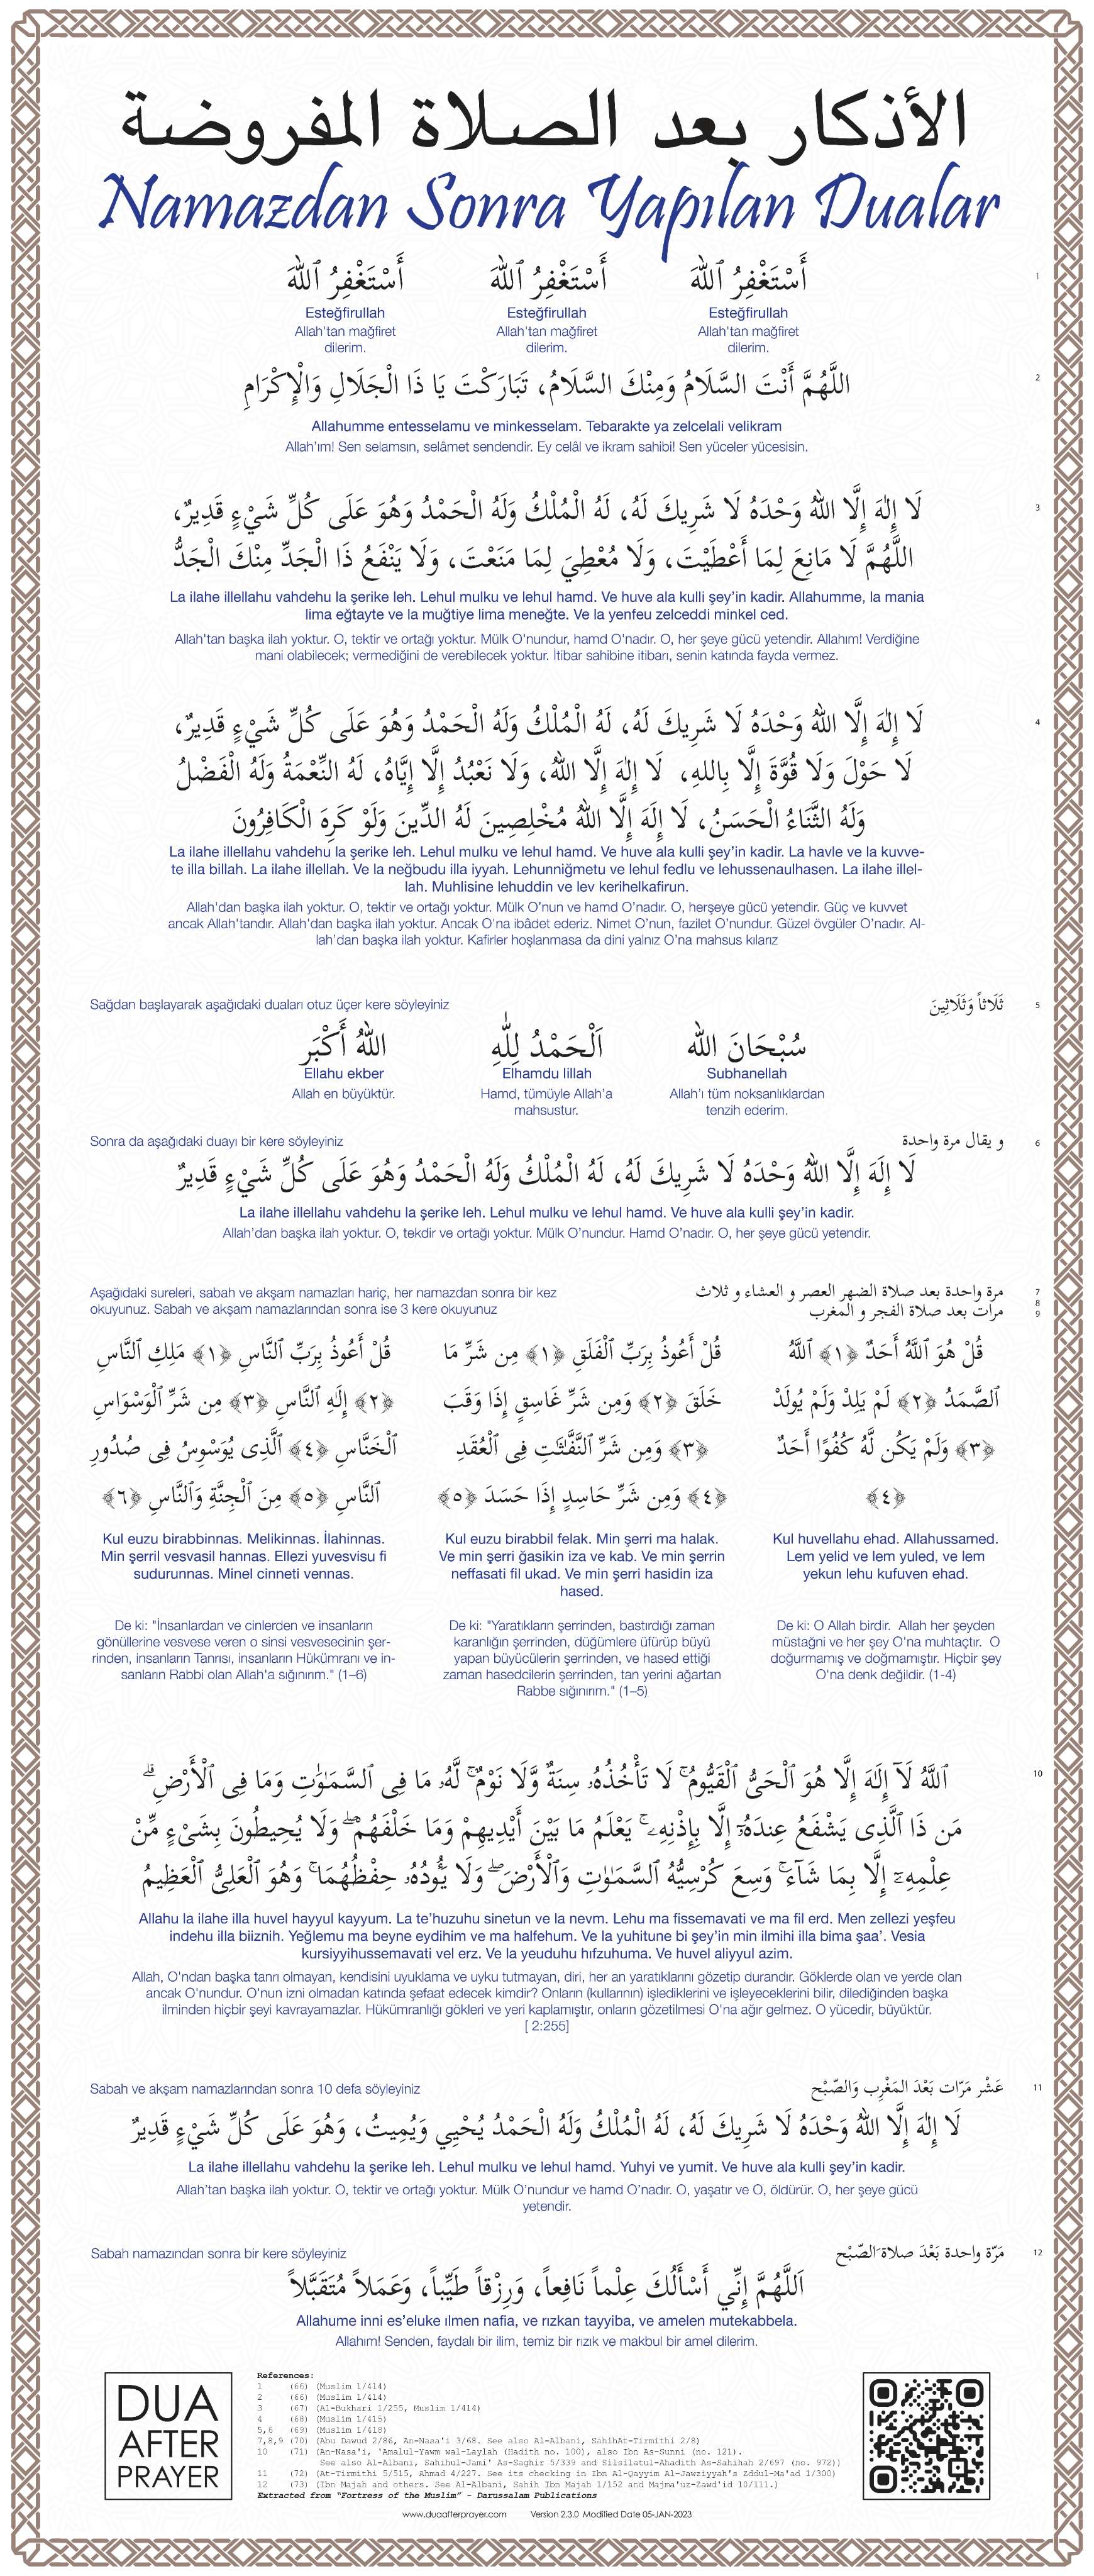 الأذكار بعد الصلاة المفروضة
Namazdan Sonra Yapılan Dualar
1
أَسْتَغْفِرُ ٱللهَ أَسْتَغْفِرُ ٱللهَ أَسْتَغْفِرُ ٱللهَ
Esteğfirullah Esteğfirullah Esteğfirullah
Allah'tan mağfiret Allah'tan mağfiret Allah'tan mağfiret
dilerim. dilerim. dilerim.
2
اللَّهُمَّ أَنْتَ السَّلَامُ وَمِنْكَ السَّلَامُ، تَبَارَكْتَ يَا ذَا الْجَلَالِ وَالْإِكْرَامِ
Allahumme entesselamu ve minkesselam. Tebarakte ya zelcelali velikram
Allah'ım! Sen selamsın, selâmet sendendir. Ey celâl ve ikram sahibi! Sen yüceler yücesisin.
3
لَا إِلٰهَ إِلَّا اللهُ وَحْدَهُ لَا شَرِيكَ لَهُ، لَهُ الْمُلْكُ وَلَهُ الْحَمْدُ وَهُوَ عَلَى كُلِّ شَيْءٍ قَدِيرٌ،
اللَّهُمَّ لَا مَانِعَ لِمَا أَعْطَيْتَ، وَلَا مُعْطِيَ لِمَا مَنَعْتَ، وَلَا يَنْفَعُ ذَا الْجَدِّ مِنْكَ الْجَدُّ
La ilahe illellahu vahdehu la şerike leh. Lehul mulku ve lehul hamd. Ve huve ala kulli şey'in kadir. Allahumme, la mania
lima eğtayte ve la muğtiye lima meneğte. Ve la yenfeu zelceddi minkel ced.
Allah'tan başka ilah yoktur. O, tektir ve ortağı yoktur. Mülk O'nundur, hamd O'nadır. O, her şeye gücü yetendir. Allahım! Verdiğine
mani olabilecek; vermediğini de verebilecek yoktur. İtibar sahibine itibarı, senin katında fayda vermez.
4
لَا إِلٰهَ إِلَّا اللهُ وَحْدَهُ لَا شَرِيكَ لَهُ، لَهُ الْمُلْكُ وَلَهُ الْحَمْدُ وَهُوَ عَلَى كُلِّ شَيْءٍ قَدِيرٌ،
لَا حَوْلَ وَلَا قُوَّةَ إِلَّا بِاللهِ، لَا إِلٰهَ إِلَّا اللهُ، وَلَا نَعْبُدُ إِلَّا إِيَّاهُ، لَهُ النِّعْمَةُ وَلَهُ الْفَضْلُ
وَلَهُ الثَّنَاءُ الْحَسَنُ، لَا إِلَهَ إِلَّا اللهُ مُخْلِصِينَ لَهُ الدِّينَ وَلَوْ كَرِهَ الْكَافِرُونَ
La ilahe illellahu vahdehu la şerike leh. Lehul mulku ve lehul hamd. Ve huve ala kulli şey'in kadir. La havle ve la kuvve-
te illa billah. La ilahe illellah. Ve la neğbudu illa iyyah. Lehunniğmetu ve lehul fedlu ve lehussenaulhasen. La ilahe illel-
lah. Muhlisine lehuddin ve lev kerihelkafirun.
Allah'dan başka ilah yoktur. O, tektir ve ortağı yoktur. Mülk O'nun ve hamd O'nadır. O, herşeye gücü yetendir. Güç ve kuvvet
ancak Allah'tandır. Allah'dan başka ilah yoktur. Ancak O'na ibâdet ederiz. Nimet O'nun, fazilet O'nundur. Güzel övgüler O'nadır. Al-
lah'dan başka ilah yoktur. Kafirler hoşlanmasa da dini yalnız O'na mahsus kılarız
Sağdan başlayarak aşağıdaki duaları otuz üçer kere söyleyiniz ثَلَاثاً وَثَلَاثِينَ 5
سُبْحَانَ الله اَلْحَمْدُ لِلّٰهِ اللهُ أَكْبَر
Ellahu ekber Elhamdu lillah Subhanellah
Allah en büyüktür. Hamd, tümüyle Allah'a Allah'ı tüm noksanlıklardan
mahsustur. tenzih ederim.
Sonra da aşağıdaki duayı bir kere söyleyiniz و يقال مرة واحدة 6
لَا إِلَهَ إِلَّا اللهُ وَحْدَهُ لَا شَرِيكَ لَهُ، لَهُ الْمُلْكُ وَلَهُ الْحَمْدُ وَهُوَ عَلَى كُلِّ شَيْءٍ قَدِيرٌ
La ilahe illellahu vahdehu la şerike leh. Lehul mulku ve lehul hamd. Ve huve ala kulli şey'in kadir.
Allah'dan başka ilah yoktur. O, tekdir ve ortağı yoktur. Mülk O'nundur. Hamd O'nadır. O, her şeye gücü yetendir.
Aşağıdaki sureleri, sabah ve akşam namazları hariç, her namazdan sonra bir kez
okuyunuz. Sabah ve akşam namazlarından sonra ise 3 kere okuyunuz
مرة واحدة بعد صلاة الضهر العصر و العشاء و ثلاث
مرات بعد صلاة الفجر و المغرب
7
8
9
قُلْ هُوَ ٱللَّهُ أَحَدٌ ﴿١﴾ ٱللَّهُ
ٱلصَّمَدُ ﴿٢﴾ لَمْ يَلِدْ وَلَمْ يُولَدْ
﴿٣﴾ وَلَمْ يَكُن لَّهُ كُفُوًا أَحَدٌ
﴿٤﴾
Kul huvellahu ehad. Allahussamed.
Lem yelid ve lem yuled, ve lem
yekun lehu kufuven ehad.
De ki: O Allah birdir. Allah her şeyden
müstağni ve her şey O'na muhtaçtır. O
doğurmamış ve doğmamıştır. Hiçbir şey
O'na denk değildir. (1-4)
قُلْ أَعُوذُ بِرَبِّ ٱلْفَلَقِ ﴿١﴾ مِن شَرِّ مَا
خَلَقَ ﴿٢﴾ وَمِن شَرِّ غَاسِقٍ إِذَا وَقَبَ
﴿٣﴾ وَمِن شَرِّ ٱلنَّفَّٰثَٰتِ فِى ٱلْعُقَدِ
﴿٤﴾ وَمِن شَرِّ حَاسِدٍ إِذَا حَسَدَ ﴿٥﴾
Kul euzu birabbil felak. Min şerri ma halak.
Ve min şerri ğasikin iza ve kab. Ve min şerrin
neffasati fil ukad. Ve min şerri hasidin iza
hased.
De ki: "Yaratıkların şerrinden, bastırdığı zaman
karanlığın şerrinden, düğümlere üfürüp büyü
yapan büyücülerin şerrinden, ve hased ettiği
zaman hasedcilerin şerrinden, tan yerini ağartan
Rabbe sığınırım." (1–5)
قُلْ أَعُوذُ بِرَبِّ ٱلنَّاسِ ﴿١﴾ مَلِكِ ٱلنَّاسِ
﴿٢﴾ إِلَٰهِ ٱلنَّاسِ ﴿٣﴾ مِن شَرِّ ٱلْوَسْوَاسِ
ٱلْخَنَّاسِ ﴿٤﴾ ٱلَّذِى يُوَسْوِسُ فِى صُدُورِ
ٱلنَّاسِ ﴿٥﴾ مِنَ ٱلْجِنَّةِ وَٱلنَّاسِ ﴿٦﴾
Kul euzu birabbinnas. Melikinnas. İlahinnas.
Min şerril vesvasil hannas. Ellezi yuvesvisu fi
sudurunnas. Minel cinneti vennas.
De ki: "İnsanlardan ve cinlerden ve insanların
gönüllerine vesvese veren o sinsi vesvesecinin şer-
rinden, insanların Tanrısı, insanların Hükümranı ve in-
sanların Rabbi olan Allah'a sığınırım." (1–6)
10
ٱللَّهُ لَآ إِلَٰهَ إِلَّا هُوَ ٱلْحَىُّ ٱلْقَيُّومُ ۚ لَا تَأْخُذُهُۥ سِنَةٌ وَّلَا نَوْمٌ ۚ لَّهُۥ مَا فِى ٱلسَّمَٰوَٰتِ وَمَا فِى ٱلْأَرْضِ ۗ
مَن ذَا ٱلَّذِى يَشْفَعُ عِندَهُۥٓ إِلَّا بِإِذْنِهِۦ ۚ يَعْلَمُ مَا بَيْنَ أَيْدِيهِمْ وَمَا خَلْفَهُمْ ۖ وَلَا يُحِيطُونَ بِشَىْءٍ مِّنْ
عِلْمِهِۦٓ إِلَّا بِمَا شَآءَ ۚ وَسِعَ كُرْسِيُّهُ ٱلسَّمَٰوَٰتِ وَٱلْأَرْضَ ۖ وَلَا يَـُٔودُهُۥ حِفْظُهُمَا ۚ وَهُوَ ٱلْعَلِىُّ ٱلْعَظِيمُ
Allahu la ilahe illa huvel hayyul kayyum. La te'huzuhu sinetun ve la nevm. Lehu ma fissemavati ve ma fil erd. Men zellezi yeşfeu
indehu illa biiznih. Yeğlemu ma beyne eydihim ve ma halfehum. Ve la yuhitune bi şey'in min ilmihi illa bima şaa'. Vesia
kursiyyihussemavati vel erz. Ve la yeuduhu hıfzuhuma. Ve huvel aliyyul azim.
Allah, O'ndan başka tanrı olmayan, kendisini uyuklama ve uyku tutmayan, diri, her an yaratıklarını gözetip durandır. Göklerde olan ve yerde olan
ancak O'nundur. O'nun izni olmadan katında şefaat edecek kimdir? Onların (kullarının) işlediklerini ve işleyeceklerini bilir, dilediğinden başka
ilminden hiçbir şeyi kavrayamazlar. Hükümranlığı gökleri ve yeri kaplamıştır, onların gözetilmesi O'na ağır gelmez. O yücedir, büyüktür.
[ 2:255]
Sabah ve akşam namazlarından sonra 10 defa söyleyiniz عَشْر مَرّات بَعْدَ المَغْرِب وَالصّبْح 11
لَا إِلٰهَ إِلَّا اللهُ وَحْدَهُ لَا شَرِيكَ لَهُ، لَهُ الْمُلْكُ وَلَهُ الْحَمْدُ يُحْيِي وَيُمِيتُ، وَهُوَ عَلَى كُلِّ شَيْءٍ قَدِيرٌ
La ilahe illellahu vahdehu la şerike leh. Lehul mulku ve lehul hamd. Yuhyi ve yumit. Ve huve ala kulli şey'in kadir.
Allah'tan başka ilah yoktur. O, tektir ve ortağı yoktur. Mülk O'nundur ve hamd O'nadır. O, yaşatır ve O, öldürür. O, her şeye gücü
yetendir.
Sabah namazından sonra bir kere söyleyiniz مَرّة واحدة بَعْدَ صلاة الصّبْح 12
اَللَّهُمَّ إِنِّي أَسْأَلُكَ عِلْماً نَافِعاً، وَرِزْقاً طَيِّباً، وَعَمَلاً مُتَقَبَّلاً
Allahume inni es'eluke ılmen nafia, ve rızkan tayyiba, ve amelen mutekabbela.
Allahım! Senden, faydalı bir ilim, temiz bir rızık ve makbul bir amel dilerim.
DUA
AFTER
PRAYER
References:
1 (66) (Muslim 1/414)
2 (66) (Muslim 1/414)
3 (67) (Al-Bukhari 1/255, Muslim 1/414)
4 (68) (Muslim 1/415)
5,6 (69) (Muslim 1/418)
7,8,9 (70) (Abu Dawud 2/86, An-Nasa'i 3/68. See also Al-Albani, SahihAt-Tirmithi 2/8)
10 (71) (An-Nasa'i, 'Amalul-Yawm wal-Laylah (Hadith no. 100), also Ibn As-Sunni (no. 121).
See also Al-Albani, Sahihul-Jami' As-Saghir 5/339 and Silsilatul-Ahadith As-Sahihah 2/697 (no. 972))
11 (72) (At-Tirmithi 5/515, Ahmad 4/227. See its checking in Ibn Al-Qayyim Al-Jawziyyah's Zddul-Ma'ad 1/300)
12 (73) (Ibn Majah and others. See Al-Albani, Sahih Ibn Majah 1/152 and Majma'uz-Zawd'id 10/111.)
Extracted from "Fortress of the Muslim" - Darussalam Publications
www.duaafterprayer.com Version 2.3.0 Modified Date 05-JAN-2023